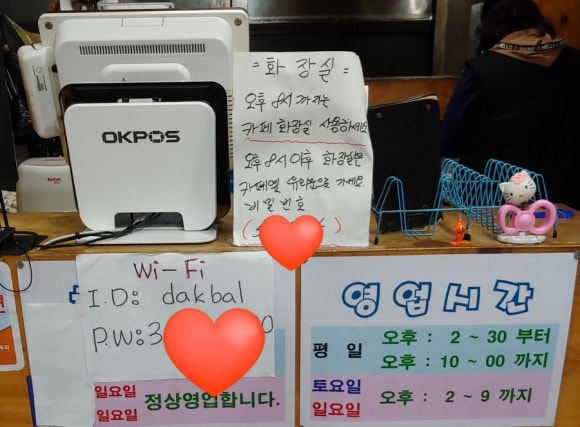 OKPOS
= 화 장실 =
오후 8시 까지는
카페 화장실 사용하세요
오후 8시 이후 화장실은
카페옆 유리문으로 가세요
비밀번호
Wi-Fi
I.D: dakbal
P.W: 3
일요일
일요일
정상영업합니다.
영업시간
평 일
오후 : 2 ~ 30 부터
오후 : 10 ~ 00 까지
토요일
일요일
오후 : 2 ~ 9 까지
HELLO
Tefal